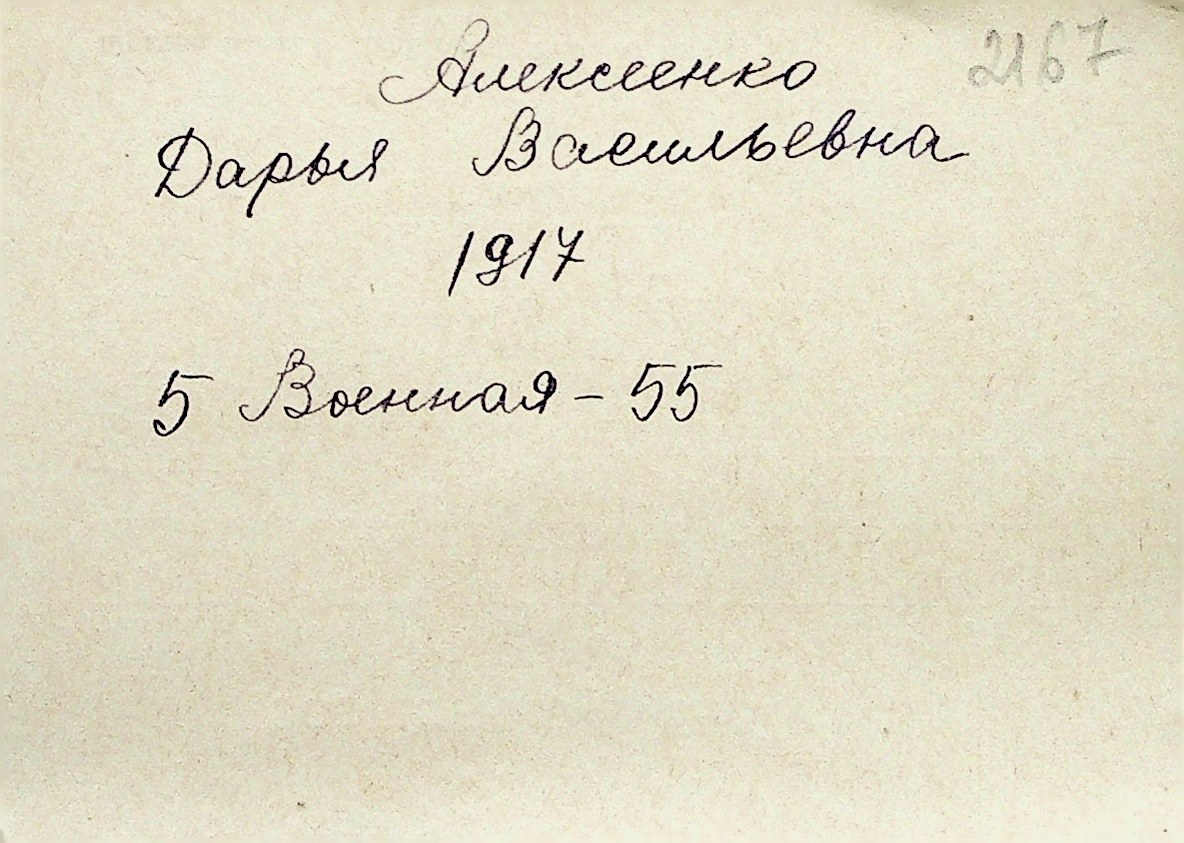 2167
Алексеенко
Дарья Васильевна
1917
5 Военная - 55